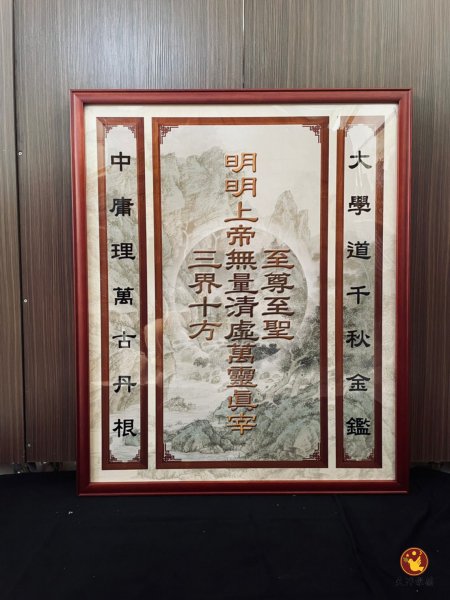 大學道千秋金鑑
明明上帝無量清虛
至尊至聖
三界十方
萬靈真宰
中庸理萬古丹根